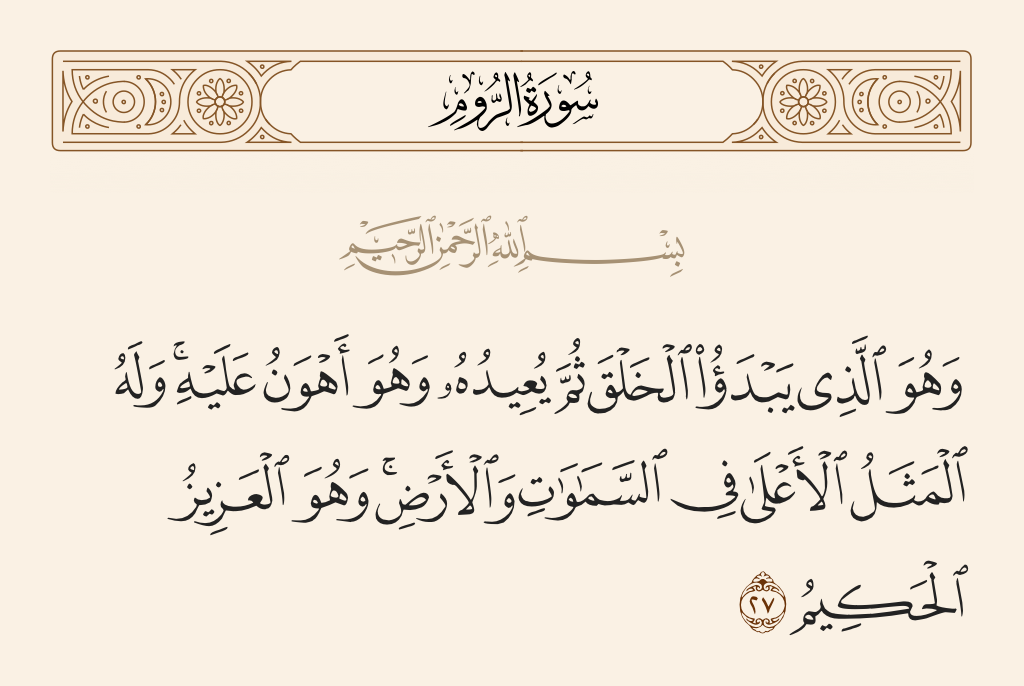 سُورَةُ الرُّومِ
بِسْمِ ٱللَّهِ ٱلرَّحْمَٰنِ ٱلرَّحِيمِ
وَهُوَ ٱلَّذِى يَبْدَؤُا۟ ٱلْخَلْقَ ثُمَّ يُعِيدُهُۥ وَهُوَ أَهْوَنُ عَلَيْهِ ۚ وَلَهُ
ٱلْمَثَلُ ٱلْأَعْلَىٰ فِى ٱلسَّمَٰوَٰتِ وَٱلْأَرْضِ ۚ وَهُوَ ٱلْعَزِيزُ
ٱلْحَكِيمُ ٢٧